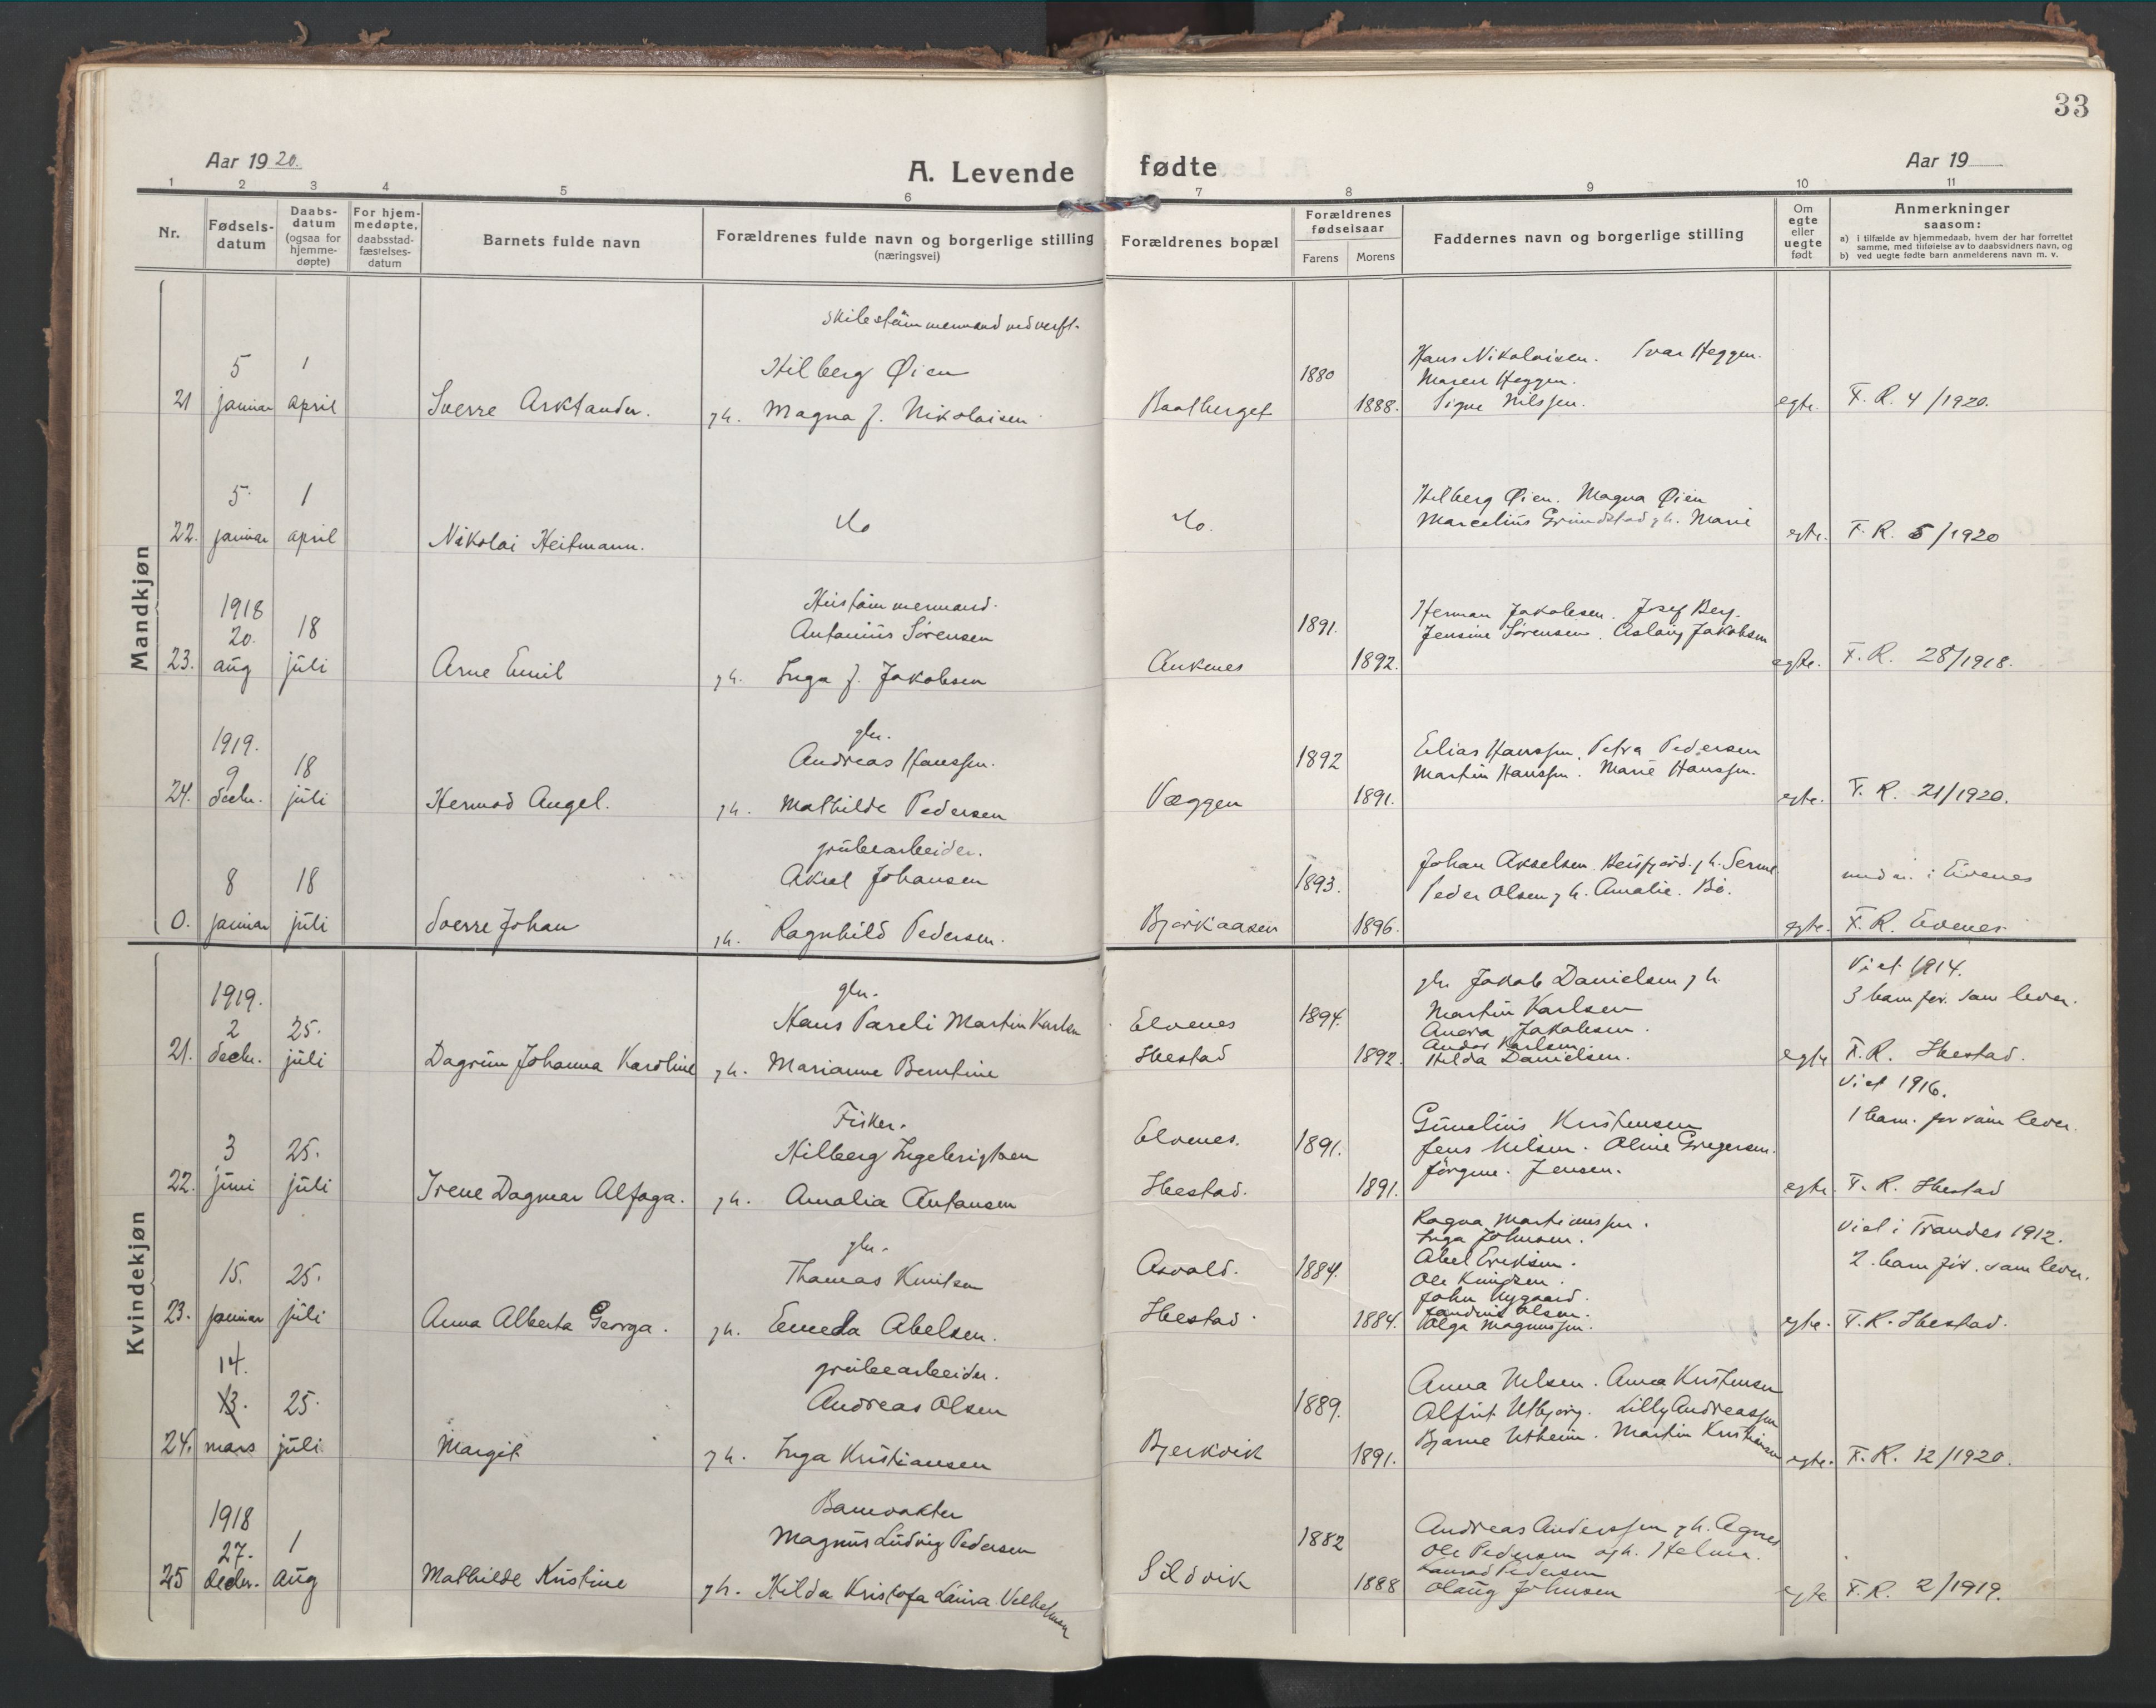 33
Aar 1920.
A. Levende fødte
Aar 19
1 2 3 4 5 6 7 8 9 10 11
Nr.
Fødsels-
datum
Daabs-
datum
(ogsaa for
hjemme-
døpte)
For hjem-
medøpte,
daabsstad-
fæstelses-
datum
Barnets fulde navn
Forældrenes fulde navn og borgerlige stilling
(næringsvei)
Forældrenes bopæl
Forældrenes
fødselsaar
Farens
Morens
Faddernes navn og borgerlige stilling
Om
egte
eller
uegte
født
Anmerkninger
saasom:
a) i tilfælde av hjemmedaab, hvem der har forrettet
samme, med tilføielse av to daabsvidners navn, og
b) ved uegte fødte barn anmelderens navn m. v.
Mandkjøn
5 1
Hilberg Øien
1880
Hans Nikolaisen. Ivar Heggen.
Maren Heggen.
21 januar april Sverre Arktander. gh. Magna f. Nikolaisen Baatberget 1888. Signe Nilssen. egte. F. R. 4/1920.
5 1
Hilberg Øien. Magna Øien
Marcelius Grundstad gh. Marie
22. januar april Nikolai Heitmann. do do. egte. F. R. 5/1920
1918
20. 18
Antonius Sørensen
1891.
Herman Jakobsen. Josef Berg.
Jensine Sørensen. Aslaug Jakobsen
23. aug juli Arne Emil gh. Inga f. Jakobsen Ankenes 1892. egte. F. R. 28/1918.
1919.
9 18
gbr.
Andreas Hanssen.
1892
Elias Hanssen. Petra Pedersen
Martin Hanssen. Marie Hanssen.
24. decbr. juli Hermod Angel. gh. Mathilde Pedersen Væggen 1891. egte. F. R. 21/1920.
8 18
grubearbeider.
Aksel Johansen
1893.
Johan Akselsen Herjord. gh.
Peder Olsen gh. Amalie. Bø.
i Evenes
0. januar juli Sverre Johan gh. Ragnhild Pedersen. Bjørkaasen 1896. egte. F. R. Evenes
Kvindekjøn
1919.
2 25.
gbr.
Hans Pareli Martin Karlsen
Elvenes
1894.
gbr. Jakob Danielsen gh.
Martin Karlsen
Anora Jakobsen.
Andor Karlsen
Hilda Danielsen.
Viet 1914.
3 barn før. som lever.
21. decbr. juli Dagrun Johanna Karoline gh. Marianne Berntine Ibestad 1892. egte F. R. Ibestad.
3 25.
Fisker.
Hilberg Ingebrigtsen
Elvenes.
1891.
Gunelius Kristensen
Jens Nilsen. Oline Gregersen.
Jørgine. Jensen.
Viet 1916.
1 barn. før som lever.
22. juni juli Irene Dagmar Alfoga. gh. Amalia Antonsen Ibestad. 1891. egte. F. R. Ibestad
15. 25.
gbr.
Thomas Knutsen
Aavold.
1884.
Ragna Martinussen.
Inga Johnsen.
Abel Eriksen.
Ole Knudsen.
John Nygaard.
Olsen.
Olga Magnussen.
Viet i Trandes 1912.
2. barn før. som lever.
23. januar juli Anna Alberta Georga. gh. Emeda Abelsen. Ibestad. 1884. egte. F. R. Ibestad.
14.
13. 25.
grubearbeider.
Andreas Olsen
1889.
Anna Nilsen. Anna Kristensen
Alfrit Utbjorg. Lilly Andreassen
Bjarne Utheim. Martin Kristiansen
24. mars juli Margit gh. Inga Kristiansen Bjerkvik 1891. egte. F. R. 12/1920.
1918
27. 1
Banevakter
Magnus Ludvig Pedersen
1882
Andreas Anderssen gh. Agnes
Ole Pedersen ogh. Helma.
Konrad Pedersen
Olaug Johnsen
25 decbr. aug Mathilde Kristine gh. Hilda Kristofa Laura Velhelmsen Sildvik 1888 egte F. R. 2/1919.